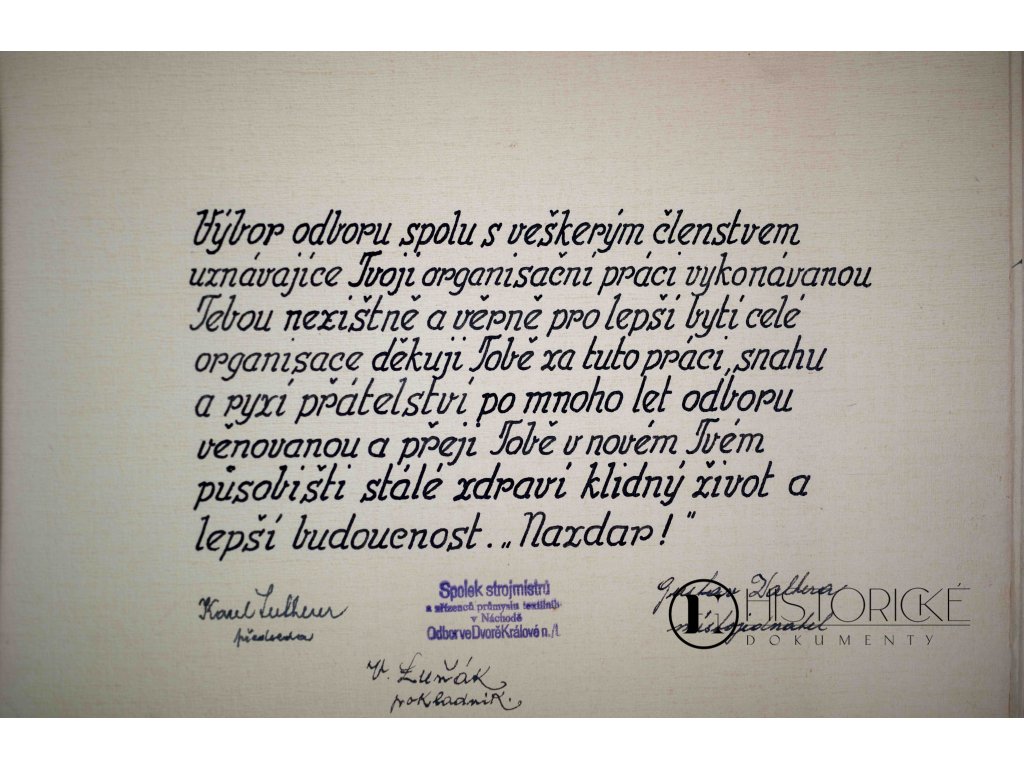 Výbor odboru spolu s veškerým členstvem
uznávajíce Tvoji organisační práci vykonávanou
Tebou nezištně a věrně pro lepší bytí celé
organisace děkuji Tobě za tuto práci, snahu
a ryzí přátelství po mnoho let odboru
věnovanou a přeji Tobě v novém Tvém
působišti stálé zdraví klidný život a
lepší budoucnost. „Nazdar!"
Karel
předseda
Spolek strojmistrů
a zřízenců průmyslu textilního
v Náchodě
Odbor ve Dvoře Králové n./L.
Gustav
HISTORICKÉ
DOKUMENTY
V. Luňák
pokladník.